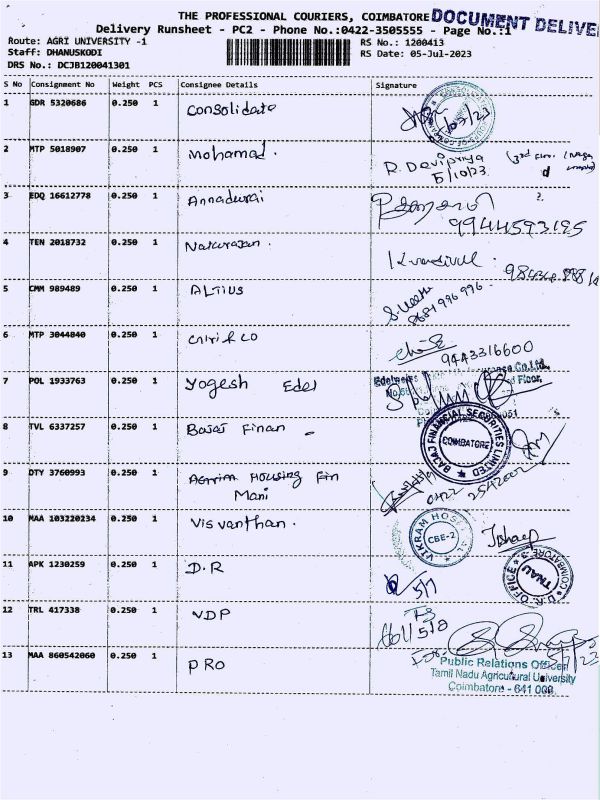 THE PROFESSIONAL COURIERS, COIMBATORE
DOCUMENT DELIVE
Delivery Runsheet - PC2 - Phone No.:0422-3505555 - Page No.:1
Route: AGRI UNIVERSITY -1
RS No.: 1200413
Staff: DHANUSKODI
RS Date: 05-Jul-2023
DRS No.: DCJB120041301
S No Consignment No Weight PCS Consignee Details Signature
1 GDR 5320686 0.250 1 Consolidate
2 MTP 5018907 0.250 1 Mohamad.
R. Devipriya
5/10/23
3 EDQ 16612778 0.250 1 Annadurai
9944593195
4 TEN 2018732 0.250 1 Natarajan.
5 CMM 989489 0.250 1 ALTIUS
8681996996
6 MTP 3044840 0.250 1
9443316600
7 POL 1933763 0.250 1 Yogesh Edel
Edelweiss Insurance Co.Ltd.
8 TVL 6337257 0.250 1 Bajaj Finan
BAJAJ FINANCIAL SECURITIES LIMITED
COIMBATORE
9 DTY 3760993 0.250 1 Agrim Housing Fin
Mani
10 MAA 103220234 0.250 1 Visvanthan.
VIKRAM HOSPITAL
CBE-2
11 APK 1230259 0.250 1 D.R
5/7
TNAU
COIMBATORE
12 TRL 417338 0.250 1 VDP
13 MAA 860542060 0.250 1 PRO
Public Relations Officer
Tamil Nadu Agricultural University
Coimbatore - 641 003.